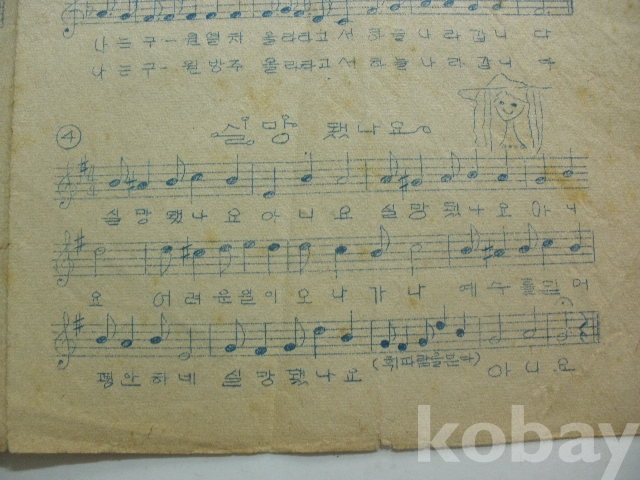 나는 구원열차 올라타고서 하늘나라 갑니다
나는 구원방주 올라타고서 하늘나라 갑니다
④ 실망 됐나요
실망됐나요 아니요 실망됐나요 아니
요 어려운 일이 오나가나 예수 믿어
평안하네 실망됐나요 아니요
kobay